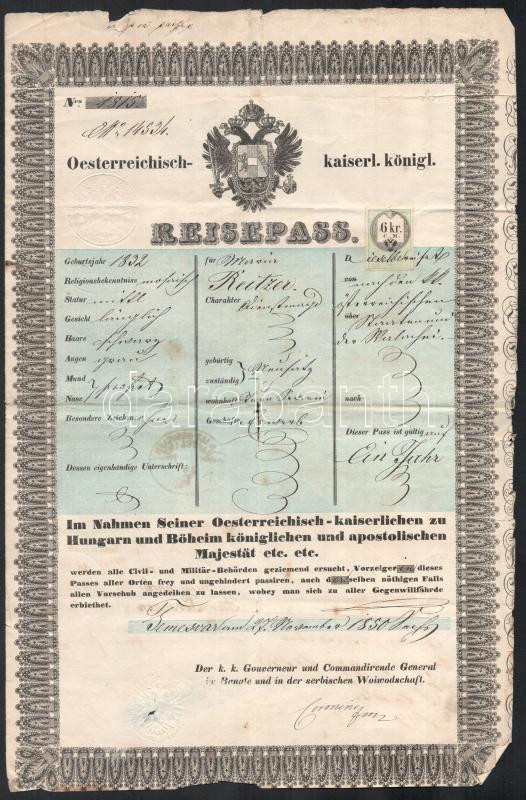 Nro. 1815
No 14534.
Oesterreichisch-
kaiserl. königl.
REISEPASS.
6 kr.
C. M.
Geburtsjahr 1832
Religionsbekenntniss mosaisch
Statur mittl
Gesicht länglich
Haare schwarz
Augen grau
Mund
Nase
prop.
Besondere Zeichen
Dessen eigenhändige Unterschrift:
für Maria
Charakter Dienstmagd
gebürtig
zuständig
Neusatz
wohnhaft
Geschäfte
D dieselbe reiset
von nach den
österreichischen
über Staaten und
der Walachei.
nach
Dieser Pass ist gültig auf
Ein Jahr
darabanth
Im Nahmen Seiner Oesterreichisch-kaiserlichen zu
Hungarn und Böheim königlichen und apostolischen
Majestät etc. etc.
werden alle Civil- und Militär-Behörden geziemend ersucht, Vorzeiger dieses
Passes aller Orten frey und ungehindert passiren, auch derselben nöthigen Falls
allen Vorschub angedeihen zu lassen, wobey man sich zu aller Gegenwillfährde
erbiethet.
Temesvar am 27. November 1850
Der k. k. Gouverneur und Commandirende General
im Banate und in der serbischen Woiwodschaft.